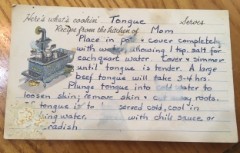 Here's what's cookin' Tongue Serves
Recipe from the kitchen of Mom
Place in pot & cover completely
with water, allowing 1 tsp. salt for
each quart water. Cover & simmer
until tongue is tender. A large
beef tongue will take 3-4 hrs.
Plunge tongue into cold water to
loosen skin; remove skin & cut away roots.
tongue is to served cold, cool in
water. with chili sauce or